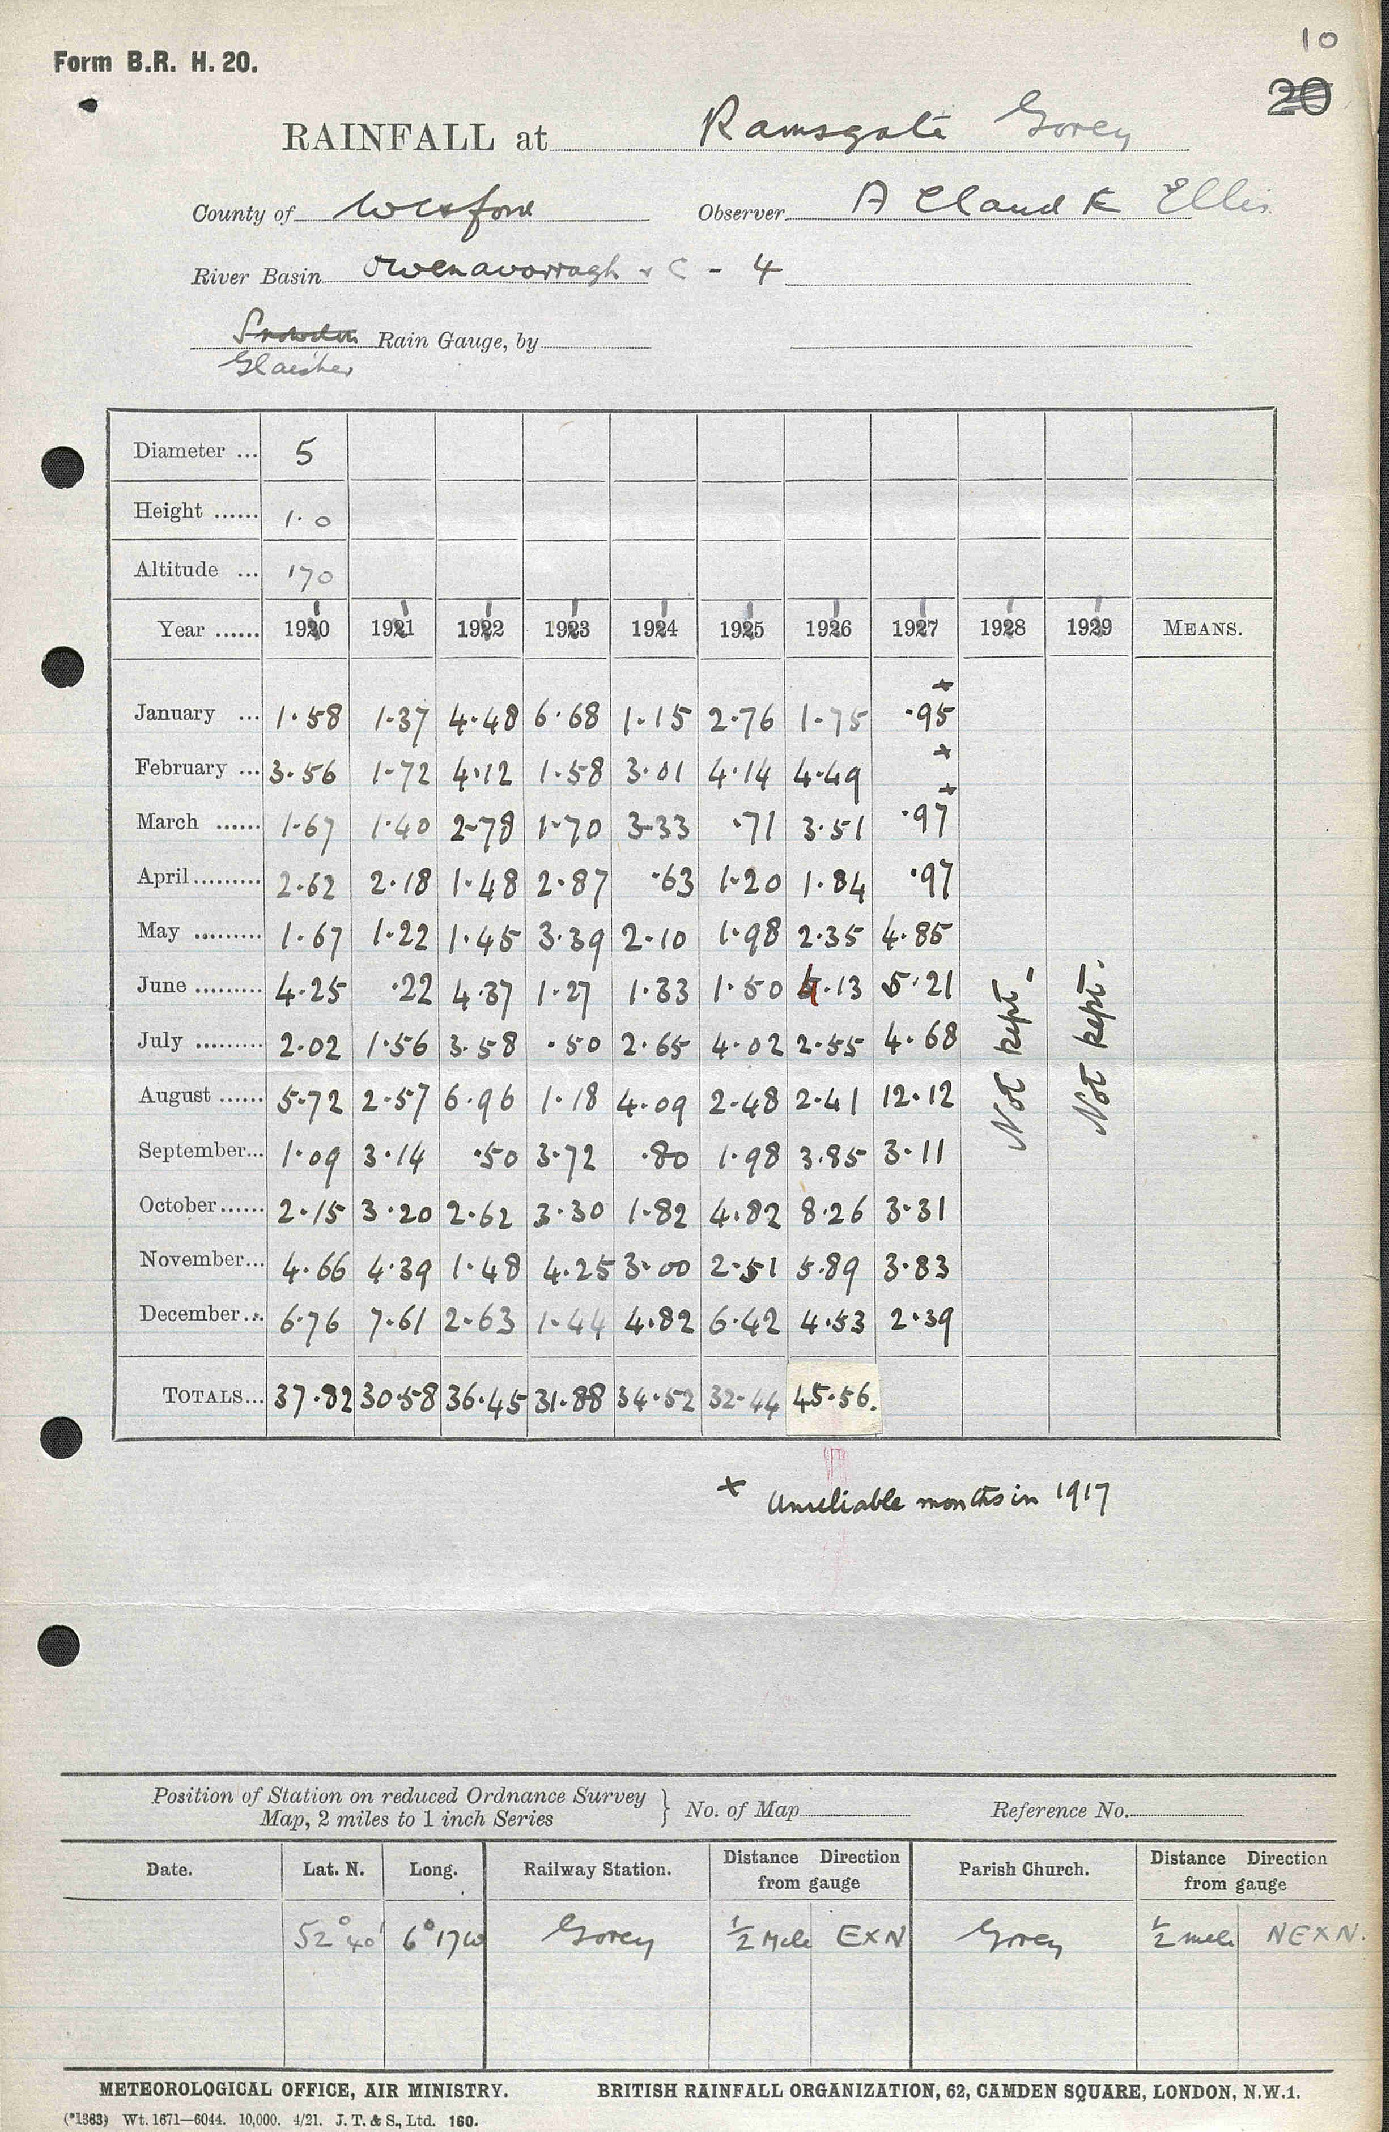 10
Form B.R. H. 20.
20
RAINFALL at Ramsgate Gorey
County of Wexford Observer A Claud K Ellis
River Basin Owenavorragh & C - 4
Snowdon Rain Gauge, by
Glaisher
Diameter ... 5
Height ...... 1.0
Altitude ... 170
1 1 1 1 1 1 1 1 1 1
Year ...... 1920 1921 1922 1923 1924 1925 1926 1927 1928 1929 MEANS.
January ... 1.58 1.37 4.48 6.68 1.15 2.76 1.75 .95 x
February ... 3.56 1.72 4.12 1.58 3.01 4.14 4.49 x
March ...... 1.67 1.40 2.78 1.70 3.33 .71 3.51 .97 x
April......... 2.62 2.18 1.48 2.87 .63 1.20 1.84 .97
May ......... 1.67 1.22 1.45 3.39 2.10 1.98 2.35 4.85
June ......... 4.25 .22 4.37 1.27 1.33 1.50 4.13 5.21
July ......... 2.02 1.56 3.58 .50 2.65 4.02 2.55 4.68
August ...... 5.72 2.57 6.96 1.18 4.09 2.48 2.41 12.12
September... 1.09 3.14 .50 3.72 .80 1.98 3.85 3.11
October...... 2.15 3.20 2.62 3.30 1.82 4.82 8.26 3.31
November... 4.66 4.39 1.48 4.25 3.00 2.51 5.89 3.83
December... 6.76 7.61 2.63 1.44 4.82 6.42 4.53 2.39
Not kept.
Not kept.
TOTALS... 37.82 30.58 36.45 31.88 34.52 32.44 45.56.
x Unreliable months in 1917
Position of Station on reduced Ordnance Survey
Map, 2 miles to 1 inch Series } No. of Map Reference No.
Date. Lat. N. Long. Railway Station. Distance from gauge Direction Parish Church. Distance from gauge Direction
52° 40' 6° 17 W Gorey 1/2 Mile E x N Gorey 1/2 mile NE x N.
METEOROLOGICAL OFFICE, AIR MINISTRY. BRITISH RAINFALL ORGANIZATION, 62, CAMDEN SQUARE, LONDON, N.W.1.
(*1363) Wt. 1671—6044. 10,000. 4/21. J. T. & S., Ltd. 160.